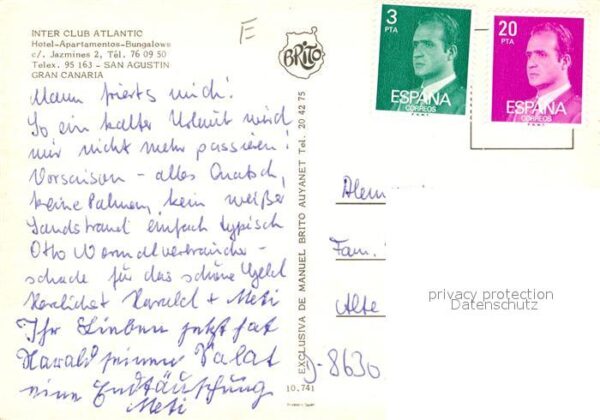 INTER CLUB ATLANTIC
Hotel-Apartamentos-Bungalows
c/. Jazmines 2, Tél. 76 09 50
Telex. 95 163 - SAN AGUSTIN
GRAN CANARIA
E
BRITO
3
PTA
ESPAÑA
CORREOS
20
PTA
ESPAÑA
CORREOS
Mann frierts mich!
So ein kalter Urlaub wird
mir nicht mehr passieren!
Vorsaison - alles Quatsch,
keine Palmen, kein weißer
Sandstrand einfach typisch
Otto Normalverbraucher -
schade für das schöne Geld
Herzlichst Harald + Meti
Ihr Lieben jetzt hat
Harald seinen Salat
eine Endtäuschung
Meti
EXCLUSIVA DE MANUEL BRITO AUYANET Tel. 20 42 75
10.741
Alem
Fam.
Alte
D-8630
privacy protection
Datenschutz